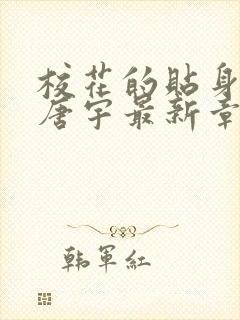 校花的贴身
唐宇最新章
韩军红